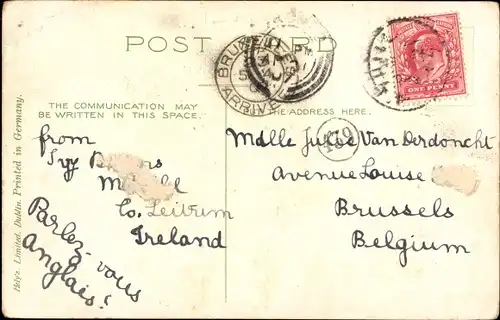 POST CARD
BRUXELLES
ARRIVÉE
ONE PENNY
THE COMMUNICATION MAY
BE WRITTEN IN THIS SPACE.
THE ADDRESS HERE.
from
Ivy
Co. Leitrim
Ireland
Parlez-vous
anglais?
Mdlle Van Derdoncht
Avenue Louise
Brussels
Belgium
Hely's Limited, Dublin. Printed in Germany.